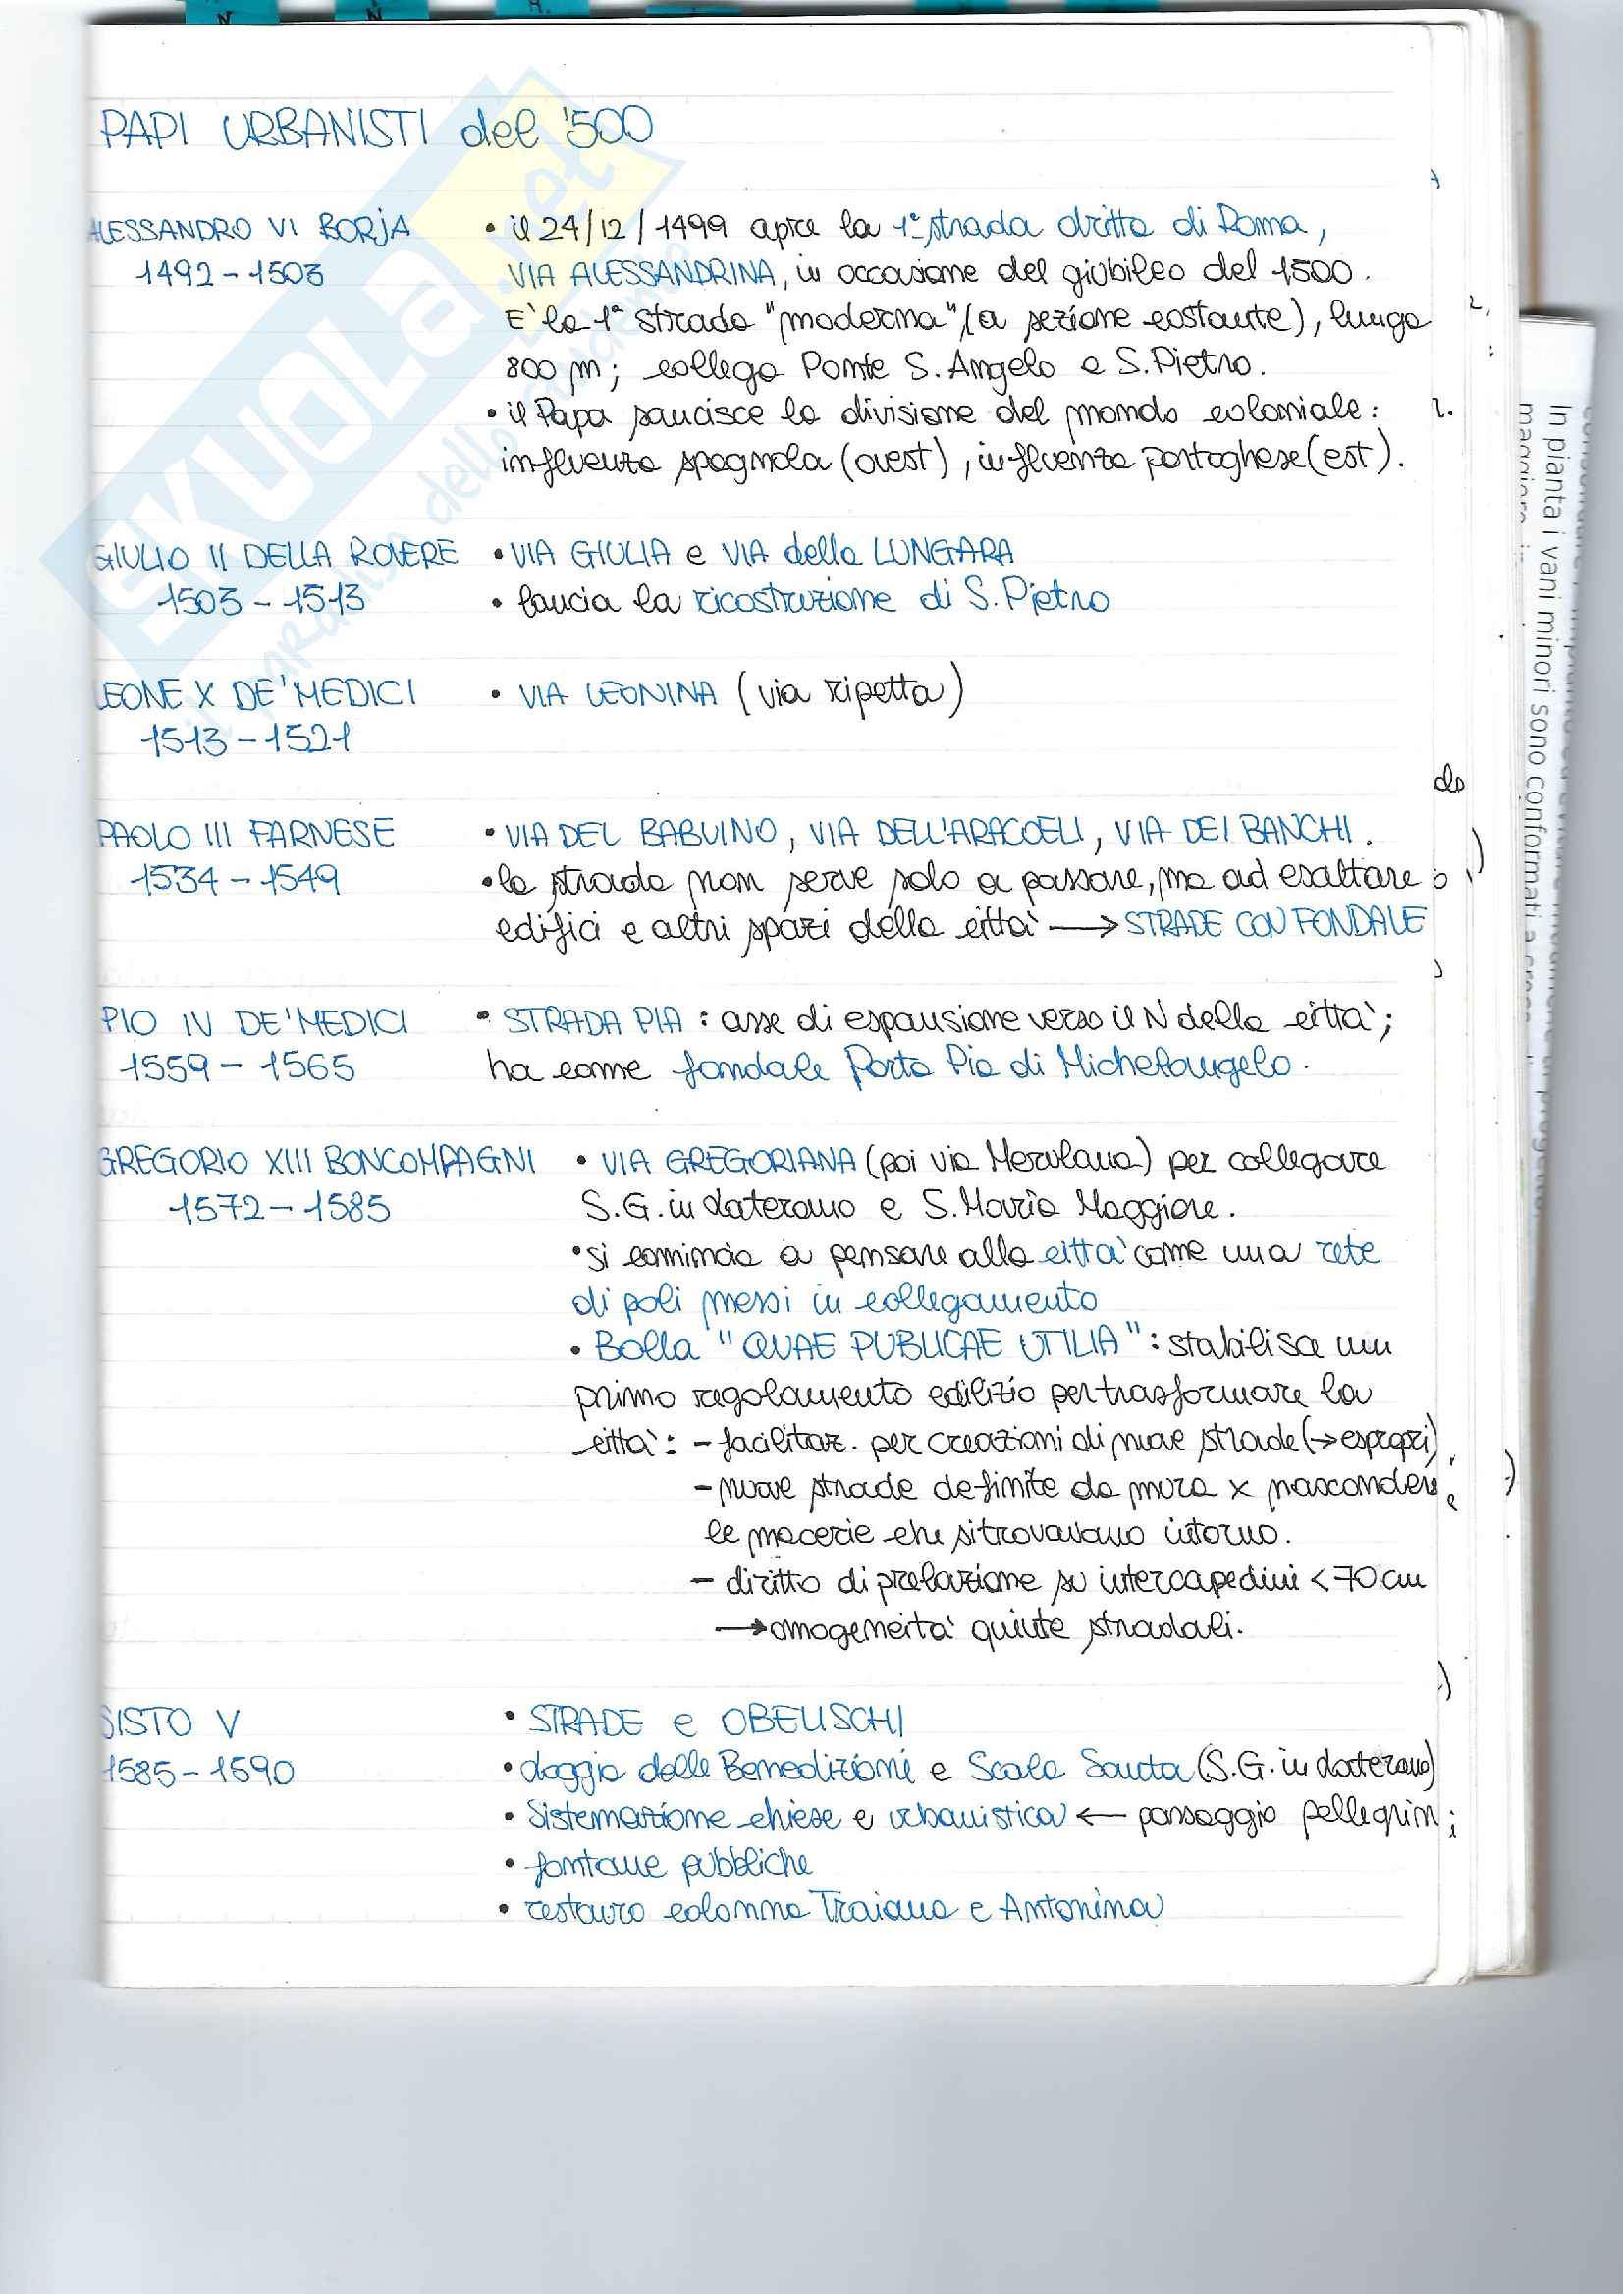 PAPI URBANISTI del '500
ALESSANDRO VI BORJA
1492 - 1503
• il 24/12/1499 apre la 1ª strada dritta di Roma,
VIA ALESSANDRINA, in occasione del giubileo del 1500.
E' la 1ª strada "moderna" (a sezione costante), lunga
800 m; collega Ponte S. Angelo e S. Pietro.
• il Papa sancisce la divisione del mondo coloniale:
influenza spagnola (ovest), influenza portoghese (est).
GIULIO II DELLA ROVERE
1503 - 1513
• VIA GIULIA e VIA della LUNGARA
• lancia la ricostruzione di S. Pietro
LEONE X DE' MEDICI
1513 - 1521
• VIA LEONINA (via ripetta)
PAOLO III FARNESE
1534 - 1549
• VIA DEL BABUINO, VIA DELL'ARACOELI, VIA DEI BANCHI.
• la strada non serve solo a passare, ma ad esaltare
edifici e altri spazi della città → STRADE CON FONDALE
PIO IV DE' MEDICI
1559 - 1565
• STRADA PIA : asse di espansione verso il N della città;
ha come fondale Porta Pia di Michelangelo.
GREGORIO XIII BONCOMPAGNI
1572 - 1585
• VIA GREGORIANA (poi via Merulana) per collegare
S.G. in Laterano e S. Maria Maggiore.
• si comincia a pensare alla città come una rete
di poli messi in collegamento
• Bolla "QUAE PUBLICAE UTILIA" : stabilisce un
primo regolamento edilizio per trasformare la
città: - facilitaz. per creazioni di nuove strade (→ espropri)
- nuove strade definite da mura x nascondere
le macerie che si trovavano intorno.
- diritto di prelazione su intercapedini < 70 cm
→ omogeneità quinte stradali.
SISTO V
1585 - 1590
• STRADE e OBELISCHI
• Loggia delle Benedizioni e Scala Santa (S.G. in Laterano)
• Sistemazione chiese e urbanistica ← passaggio pellegrini
• fontane pubbliche
• restauro colonna Traiana e Antonina
SKUOLA.net
In pianta i vani minori sono conformati a